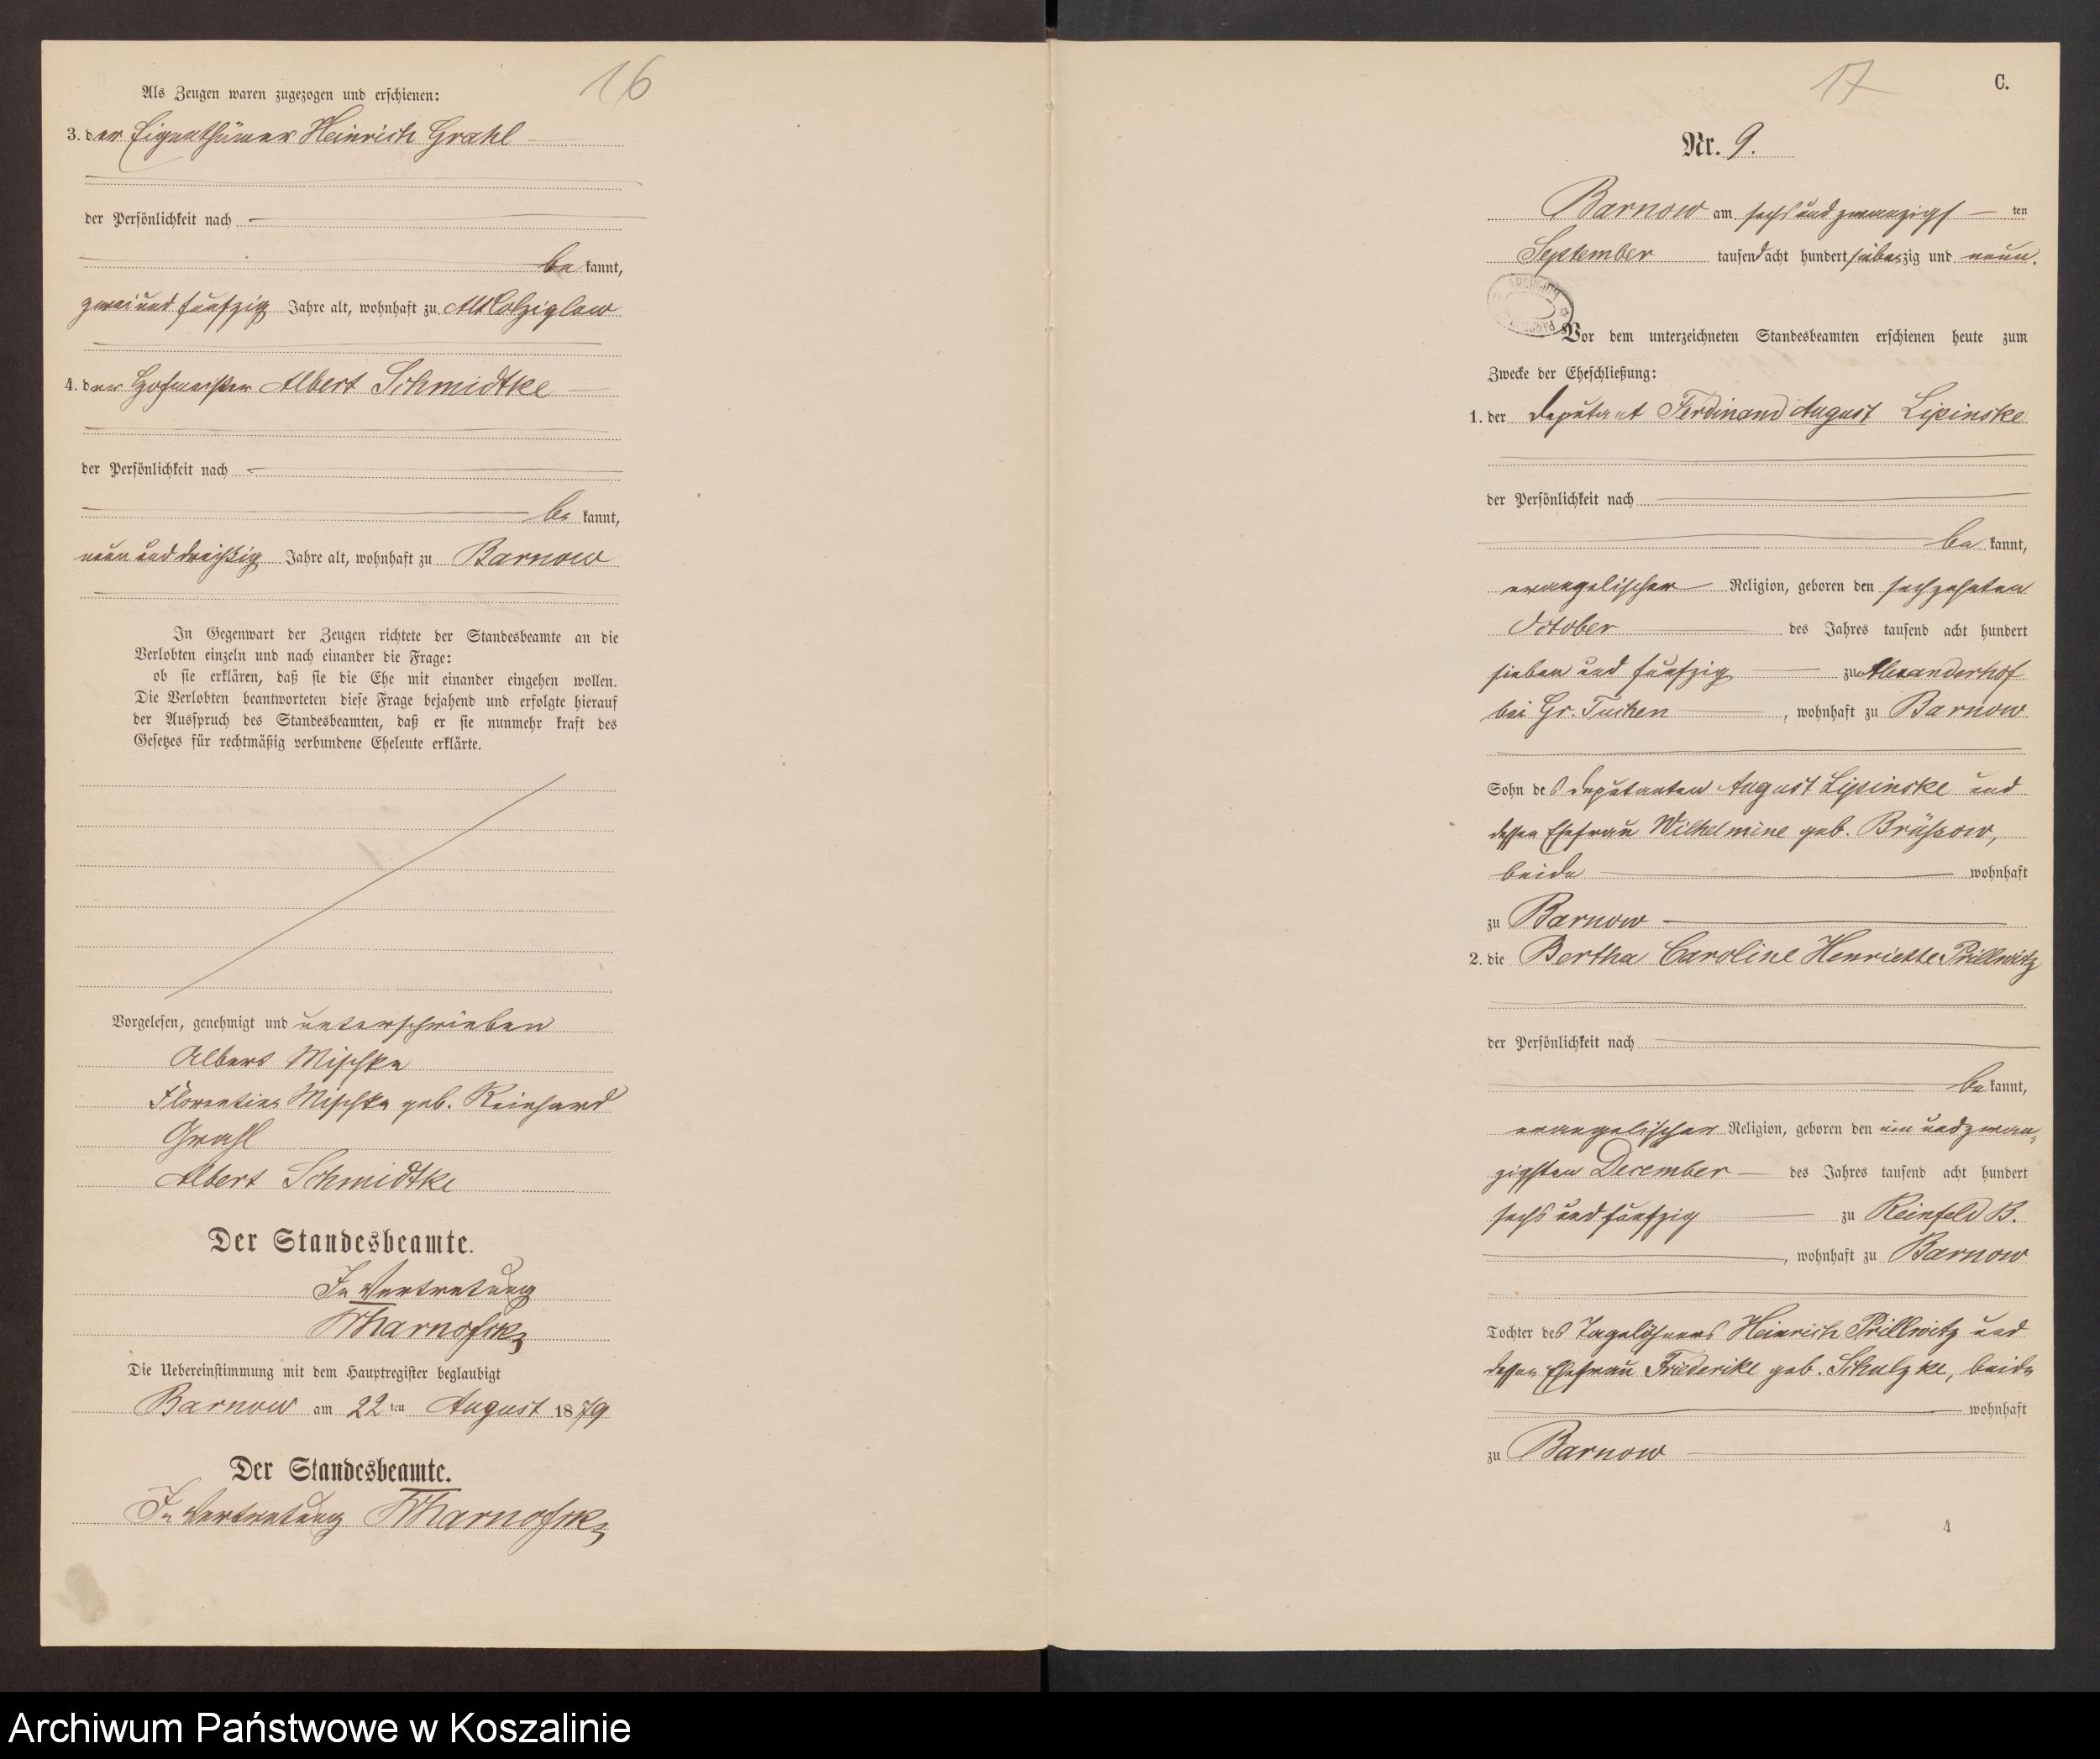 16
Als Zeugen waren zugezogen und erschienen:
3. der Eigenthümer Heinrich Grahl
der Persönlichkeit nach
bekannt,
zwei und fünfzig Jahre alt, wohnhaft zu Alt Colziglow
4. der Hofmeister Albert Schmidtke
der Persönlichkeit nach
bekannt,
neun und dreißig Jahre alt, wohnhaft zu Barnow
In Gegenwart der Zeugen richtete der Standesbeamte an die
Verlobten einzeln und nach einander die Frage:
ob sie erklären, daß sie die Ehe mit einander eingehen wollen.
Die Verlobten beantworteten diese Frage bejahend und erfolgte hierauf
der Ausspruch des Standesbeamten, daß er sie nunmehr kraft des
Gesetzes für rechtmäßig verbundene Eheleute erklärte.
Vorgelesen, genehmigt und unterschrieben
Albert Mischke
Florentine Mischke geb. Reinhard
Grahl
Albert Schmidtke
Der Standesbeamte.
In Vertretung
Die Uebereinstimmung mit dem Hauptregister beglaubigt
Barnow am 22ten August 1879
Der Standesbeamte.
In Vertretung
17
C.
Nr. 9.
Barnow am sechs und zwanzigsten
September tausend acht hundert siebenzig und neun.
ARCHIWUM
Vor dem unterzeichneten Standesbeamten erschienen heute zum
Zwecke der Eheschließung:
1. der Deputant Ferdinand August Lipinske
der Persönlichkeit nach
bekannt,
evangelischer Religion, geboren den sechzehnten
October des Jahres tausend acht hundert
sieben und fünfzig zu Alexanderhof
bei Gr. Tuchen, wohnhaft zu Barnow
Sohn des Deputanten August Lipinske und
dessen Ehefrau Wilhelmine geb. Brässow,
beide wohnhaft
zu Barnow
2. die Bertha Caroline Henriette Prillwitz
der Persönlichkeit nach
bekannt,
evangelischer Religion, geboren den ein und zwan-
zigsten December des Jahres tausend acht hundert
sechs und fünfzig zu Reinfeld B.
, wohnhaft zu Barnow
Tochter des Tagelöhners Heinrich Prillwitz und
dessen Ehefrau Friederike geb. Schulzke, beide
wohnhaft
zu Barnow
4
Archiwum Państwowe w Koszalinie